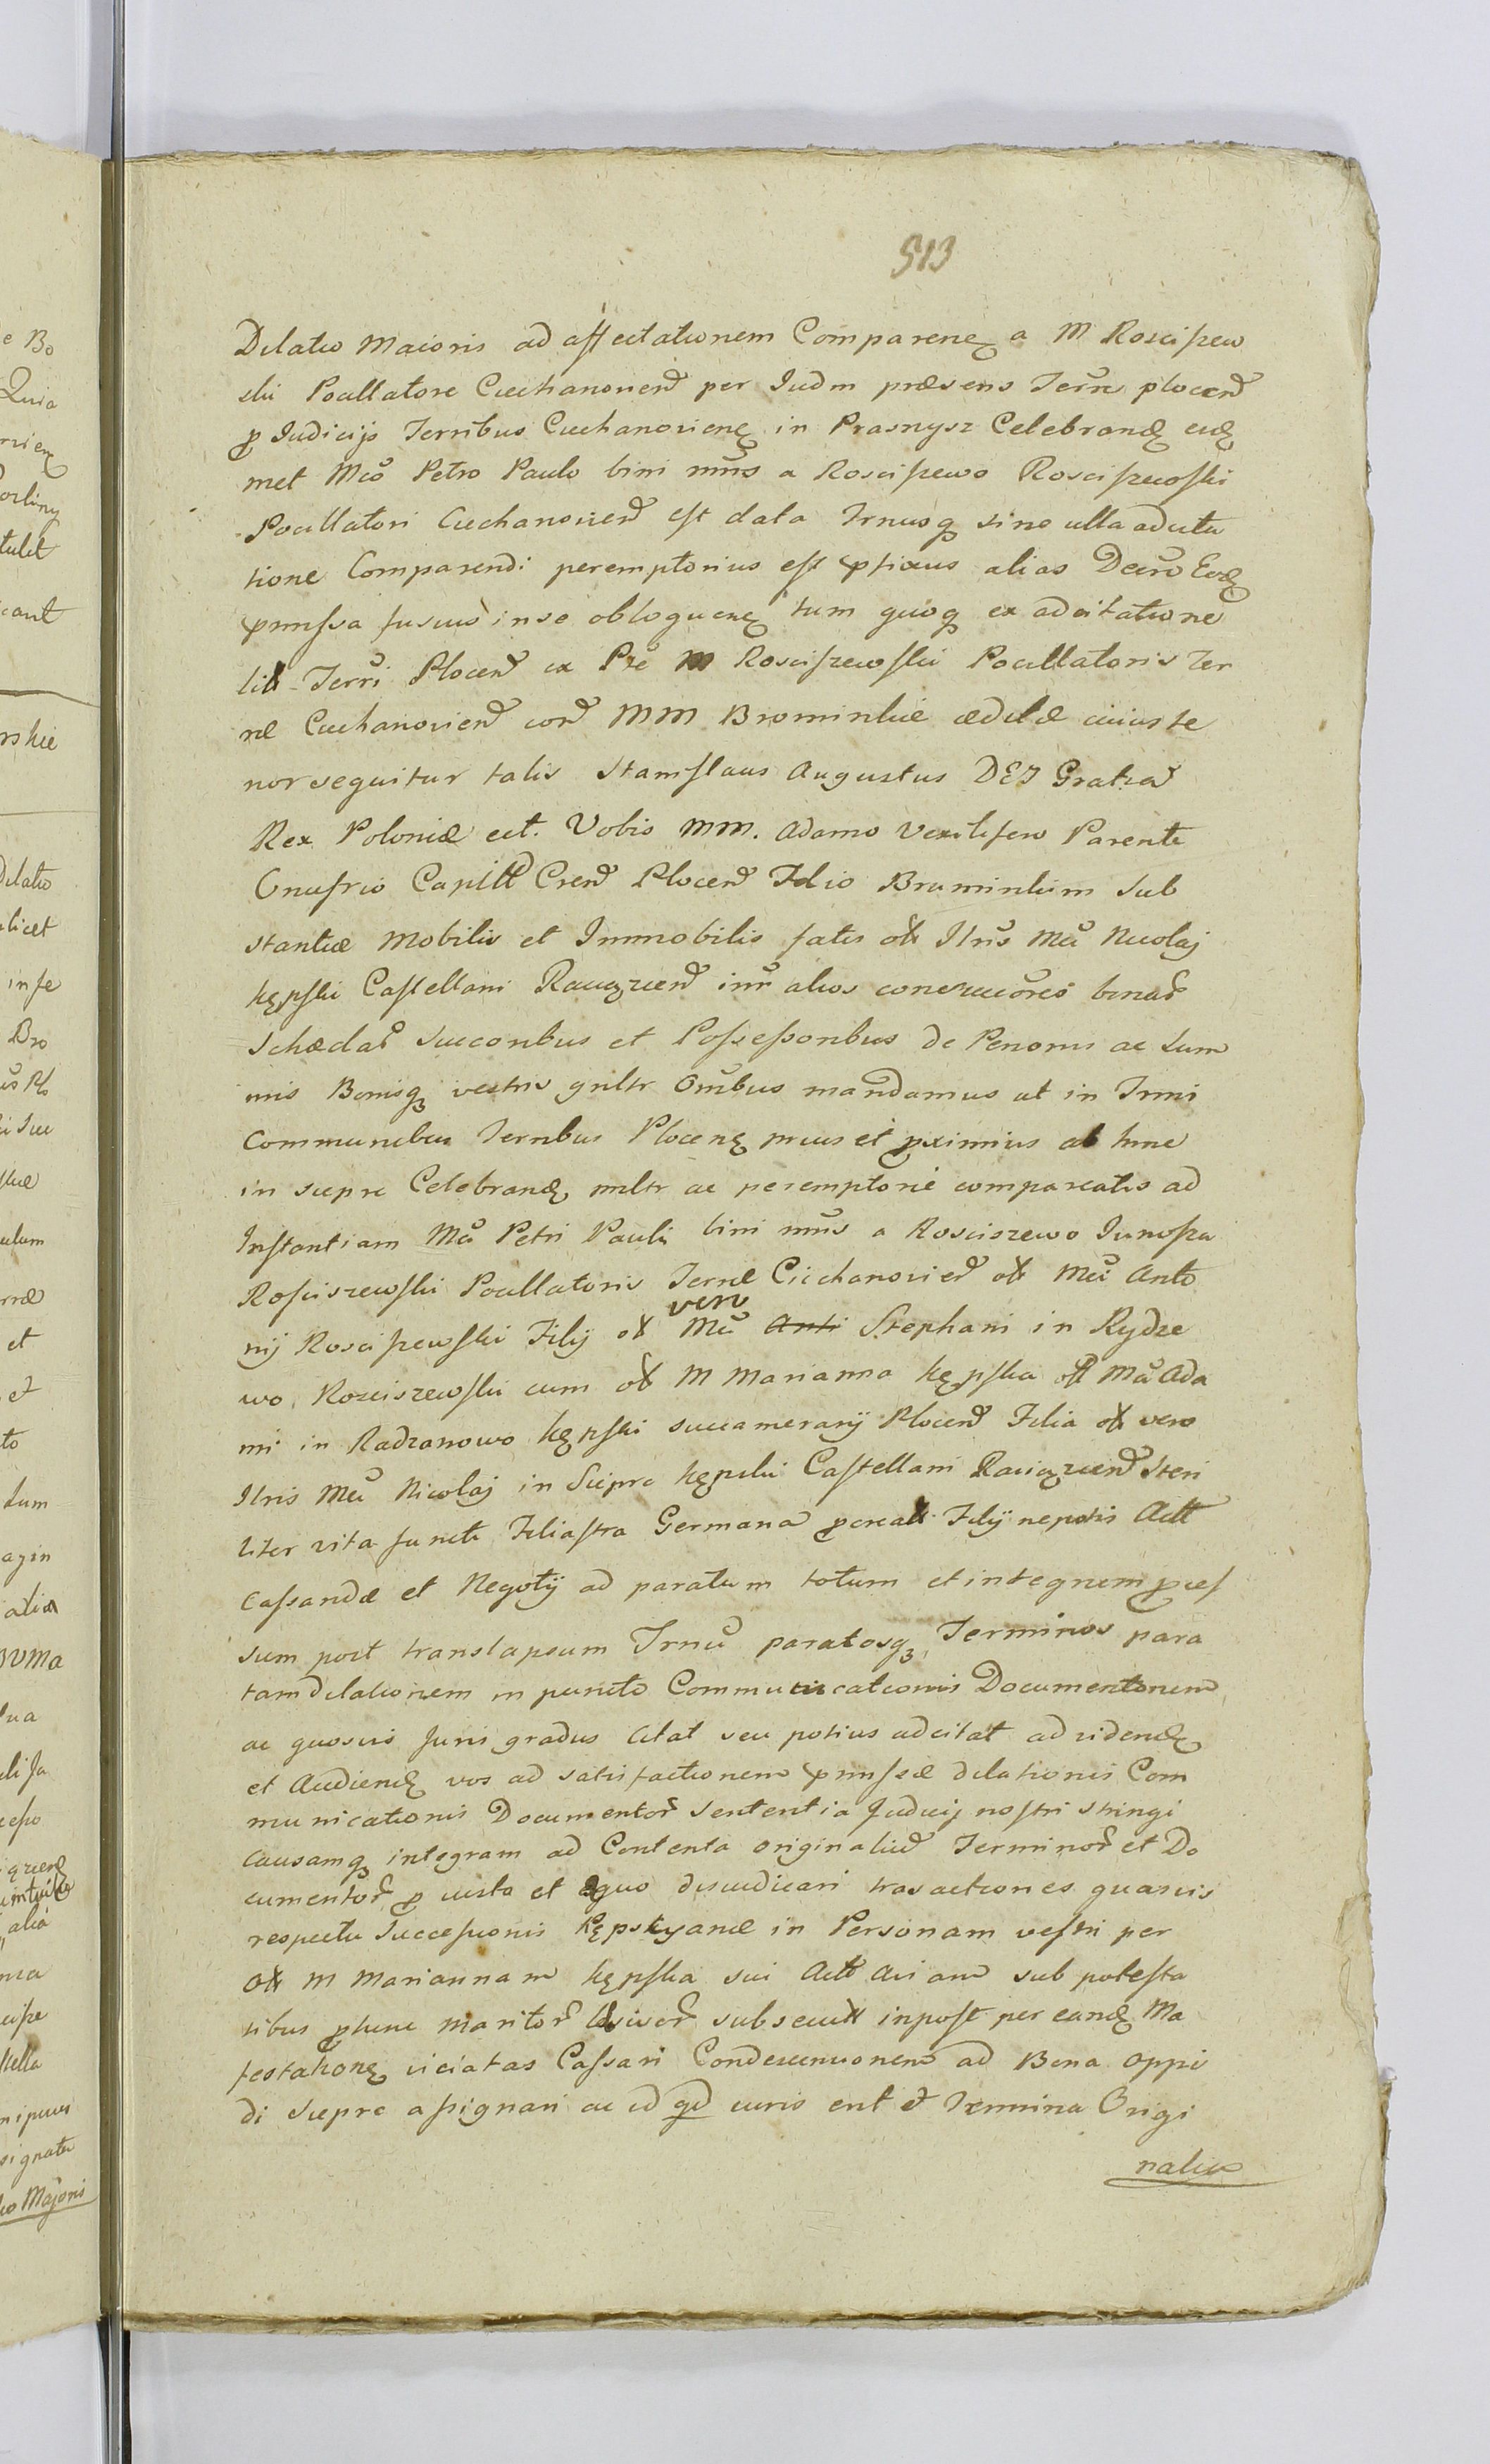 513
Dilatio Maioris ad affectationem Comparenę a M Rosciszew
ski Pocillatore Ciechanoviens per Iudm præsens Terre plocens
p Iudicijs Terribus Ciechanovienę in Prasnysz Celebrandę eidę
met Mco Petro Paulo bini nnis a Rosciszewo Rosciszewski
Pocillatori Ciechanoviens est data Trnusq sine ulla adcita
tione Comparendi peremptorius est pfixus alias Decro Eodę
pmissa fusius in se obloquenę tum quoq ex adcitatione
litt Terri Plocens ex Pte M Rosciszewski Pocillatoris Ter
ræ Ciechanoviens cora MM Brominskie ædilæ cuius te
nor sequitur talis Stanislaus Augustus DEI Gratia
Rex Poloniæ ect. Vobis MM. Adamo Vexilifero Parenti
Onufrio Capitt Crens Plocens Filio Bruminskim Sub
stantiæ Mobilis et Immobilis fatis olt Iltris Mci Nicolaj
Kępski Castellani Raciązens intr alios
Schædar Succoribus et Possessoribus de Personis ac Sum
mis Bonisq vestris gnltr Omnibus mandamus ut in Trmi
Communibus Terribus Plocenę prius et pximius ab hinc
in Siepre Celebrandę mltr ac peremptorie compareatis ad
Instantiam Mci Petri Pauli bini nnis a Rosciszewo Iunosza
Rosciszewski Pocillatoris Terræ Ciechanoviens olt Mci Anto
nij Rosciszewski Filij olt vero Mci Anti Stephani in Rydze
wo Rosciszewski cum olt M Marianna Kępska olt Mci Ada
mi in Radzanowo Kępski succamerarij Plocens Filia olt vero
Iltris Mci Nicolaj in Siepre Kępski Castellani Raciązens Steri
liter vita functi Filiastra Germana pcreatt Filij nepotis Actt
Cassandæ et Negotij ad paratum totum et integrum pces
sum post translapsum Trnu paratosq Terminos para
tam dilationem in puncto Communicationis Documentorum
ac quosvis Juris gradus Citat seu potius adcitat ad videndę
et Audiendę vos ad satisfactionem pmissæ dilationis Com
municationis Documentor Sententia Judicij nostri stringi
Causamq integram ad Contenta originaliu Terminor et Do
cumentor p iusto et æquo disiudicari trasactiones quasvis
respectu Successionis Kępskyanæ in Personam vestri per
olt M Mariannam Kępska sui Actt Aviam sub potesta
tibus ptunc maritor subsecutt inpost per eandę Ma
festationę viciatas Cassari Condescensionem ad Bona Oppi
di Siepre assignari ac id qd iuris erit et Termina Origi
nalia